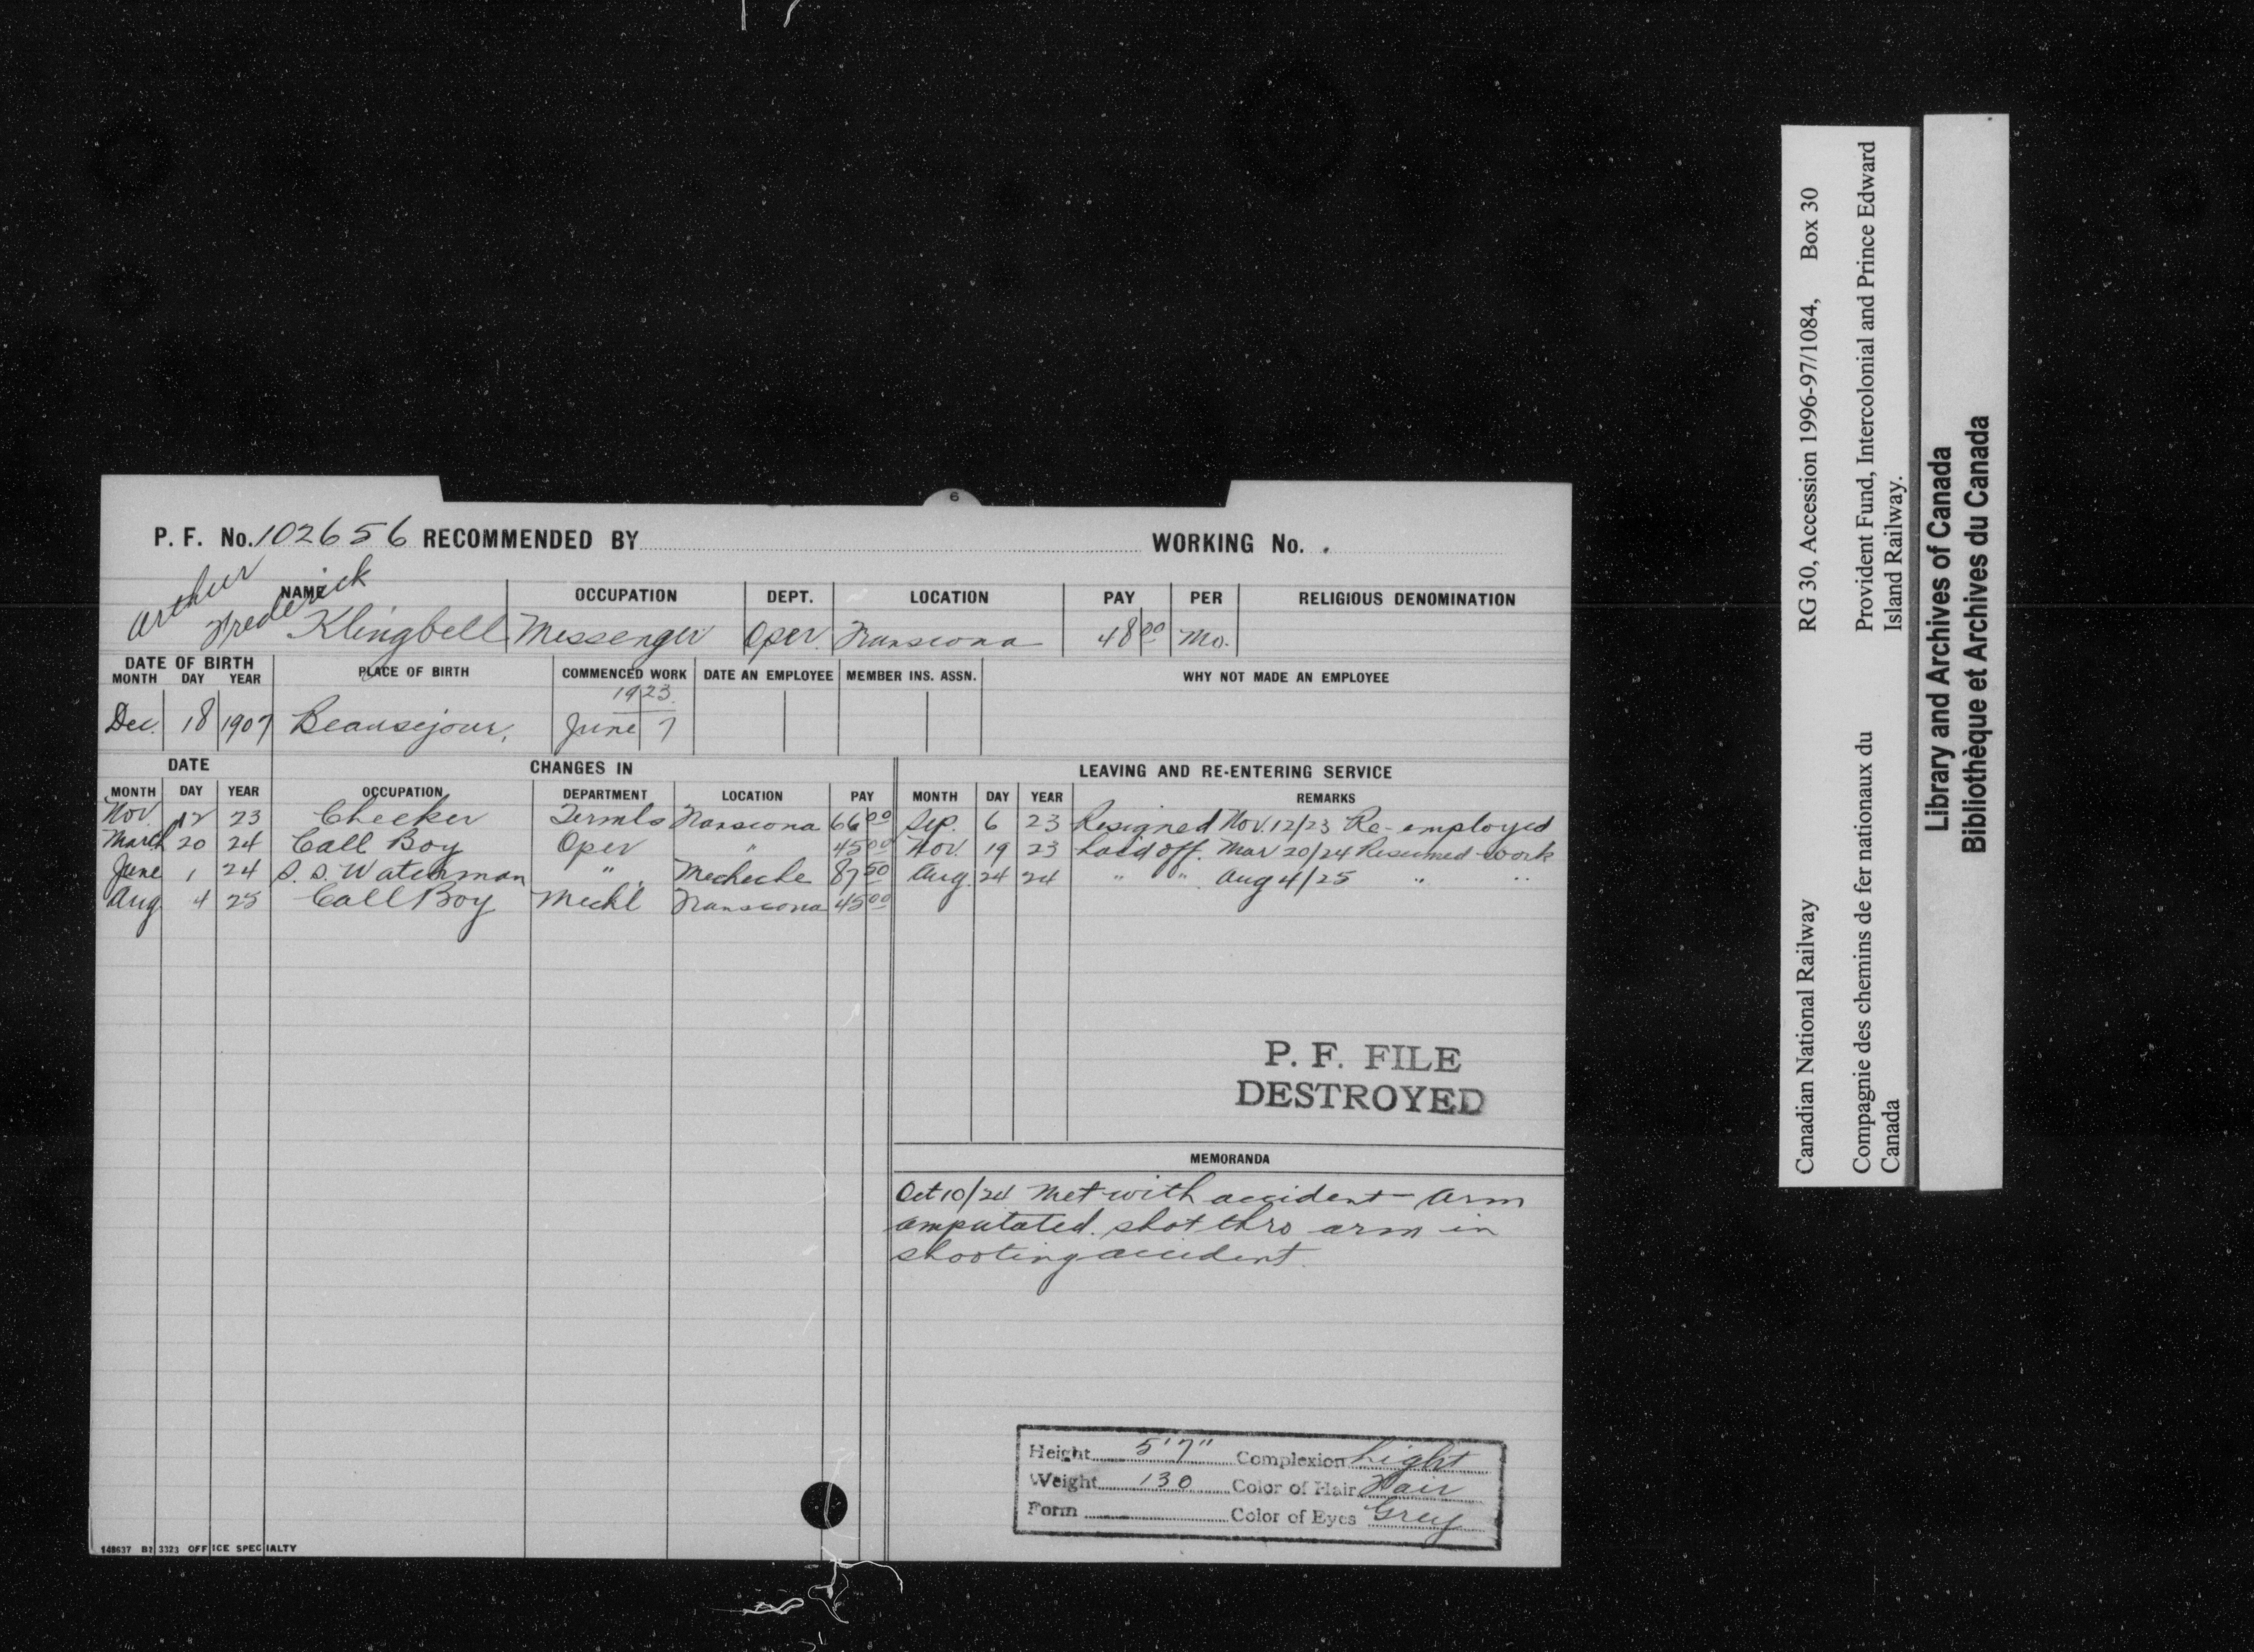 6
P. F. No. 102656 RECOMMENDED BY WORKING No. .
Arthur Frederick
NAME OCCUPATION DEPT. LOCATION PAY PER RELIGIOUS DENOMINATION
Klingbell Messenger Oper. Transcona 48 00 Mo.
DATE OF BIRTH PLACE OF BIRTH COMMENCED WORK DATE AN EMPLOYEE MEMBER INS. ASSN. WHY NOT MADE AN EMPLOYEE
MONTH DAY YEAR
1923.
Dec. 18 1907 Beausejour, June 7
DATE CHANGES IN LEAVING AND RE-ENTERING SERVICE
MONTH DAY YEAR OCCUPATION DEPARTMENT LOCATION PAY MONTH DAY YEAR REMARKS
Nov. 12 23 Checker Termls Transcona 66 00 Sep. 6 23 Resigned Nov. 12/23 Re-employed
March 20 24 Call Boy Oper " 45 00 Nov. 19 23 Laid off. Mar 20/24 Resumed work
June 1 24 S. S. Watchman " 87 50 Aug. 24 24 " " Aug 4/25 " "
Aug 4 25 Call Boy Mechl Transcona 45 00
P. F. FILE
DESTROYED
MEMORANDA
Oct 10/24 Met with accident - Arm
amputated. shot thro arm in
shooting accident.
Height 5'7" Complexion Light
Weight 130 Color of Hair Fair
Form Color of Eyes Grey
148637 B2 3323 OFFICE SPECIALTY
Canadian National Railway RG 30, Accession 1996-97/1084, Box 30
Compagnie des chemins de fer nationaux du Canada
Provident Fund, Intercolonial and Prince Edward Island Railway.
Library and Archives of Canada
Bibliothèque et Archives du Canada